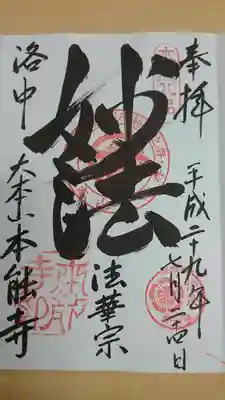 奉拝
平成二十九年
七月二十四日
妙法
法華宗
洛中
大本山本能寺
本能寺印